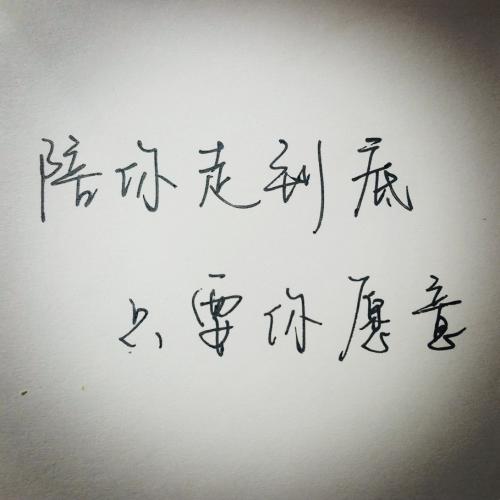 陪你走到底
只要你愿意